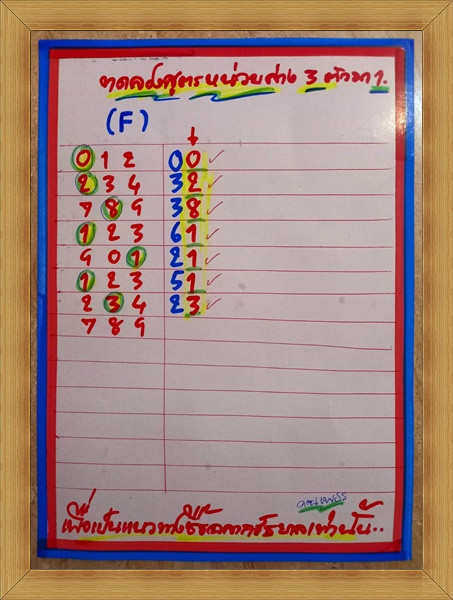 ทดลองสูตรหน่วยล่าง 3 ตัวมา 1.
(F)
0 1 2 00 ✓
2 3 4 32 ✓
7 8 9 38 ✓
1 2 3 61 ✓
9 0 1 21 ✓
1 2 3 51 ✓
2 3 4 23 ✓
7 8 9
เพื่อเป็นแนวทางใช้ซื้อสลากรัฐบาลเท่านั้น..